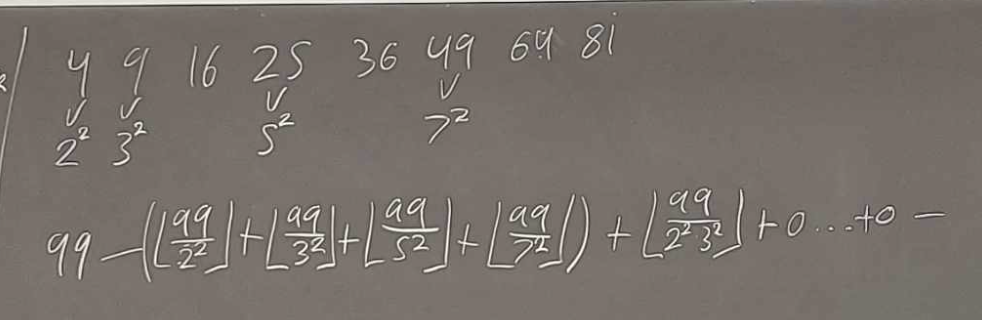 4 9 16 25 36 49 64 81
2² 3² 5² 7²
99 - (⌊99/2²⌋ + ⌊99/3²⌋ + ⌊99/5²⌋ + ⌊99/7²⌋) + ⌊99/2²·3²⌋ + 0...+0 -